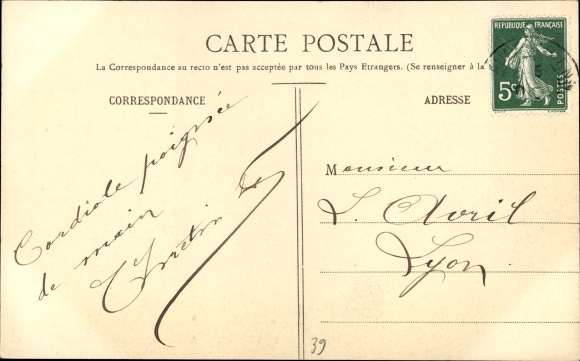 CARTE POSTALE
La Correspondance au recto n'est pas acceptée par tous les Pays Etrangers. (Se renseigner à la
REPUBLIQUE FRANÇAISE
5c
POSTES
CORRESPONDANCE
ADRESSE
Cordiale poignée
de main
Monsieur
L. Avril
Lyon
39